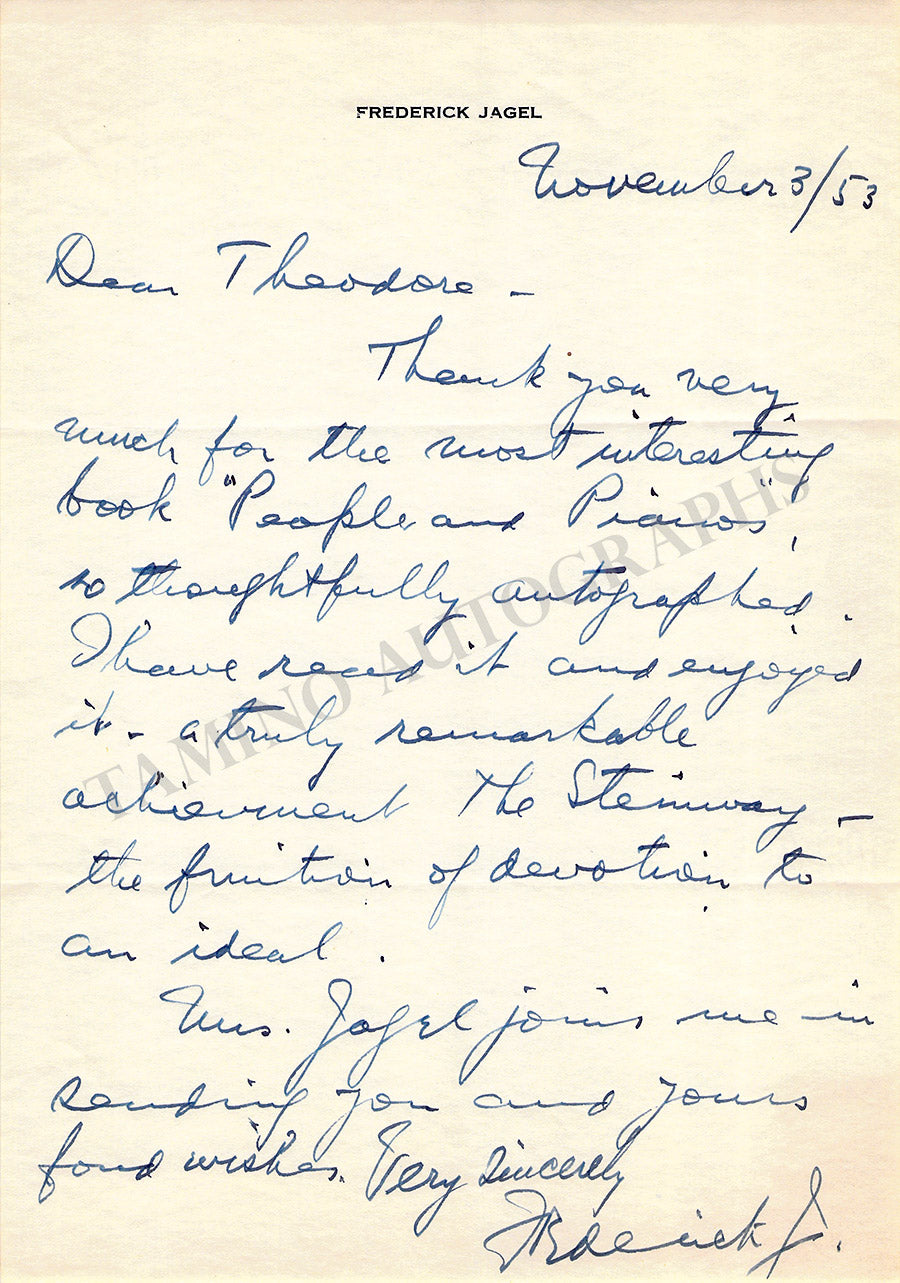 FREDERICK JAGEL
November 3/53
Dear Theodore –
Thank you very
much for the most interesting
book "People and Pianos",
so thoughtfully autographed.
I have read it and enjoyed
it – a truly remarkable
achievment The Steinway –
the fruition of devotion to
an ideal.
Mrs. Jagel joins me in
sending you and yours
fond wishes. Very Sincerely
Frederick J.
TAMINO AUTOGRAPHS